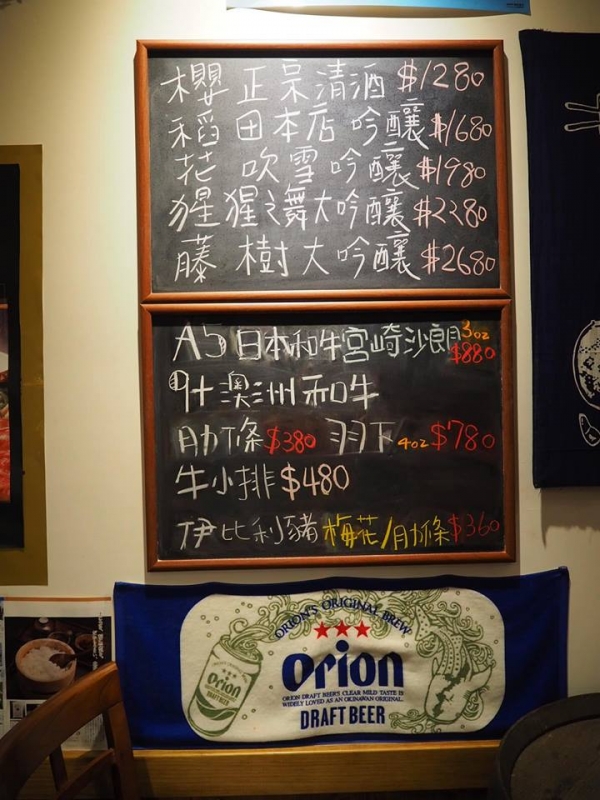 櫻正宗清酒 $1280
稻田本店吟釀 $1680
花吹雪吟釀 $1980
猩猩之舞大吟釀 $2280
藤樹大吟釀 $2680
A5日本和牛宮崎沙朗 3oz $880
9+澳洲和牛
肋條 $380 羽下 4oz $780
牛小排 $480
伊比利豬 梅花/肋條 $360
ORION'S ORIGINAL BREW
Orion
ORION DRAFT BEER'S CLEAR MILD TASTE IS
WIDELY LOVED AS AN OKINAWAN ORIGINAL.
DRAFT BEER
Orion
DRAFT BEER